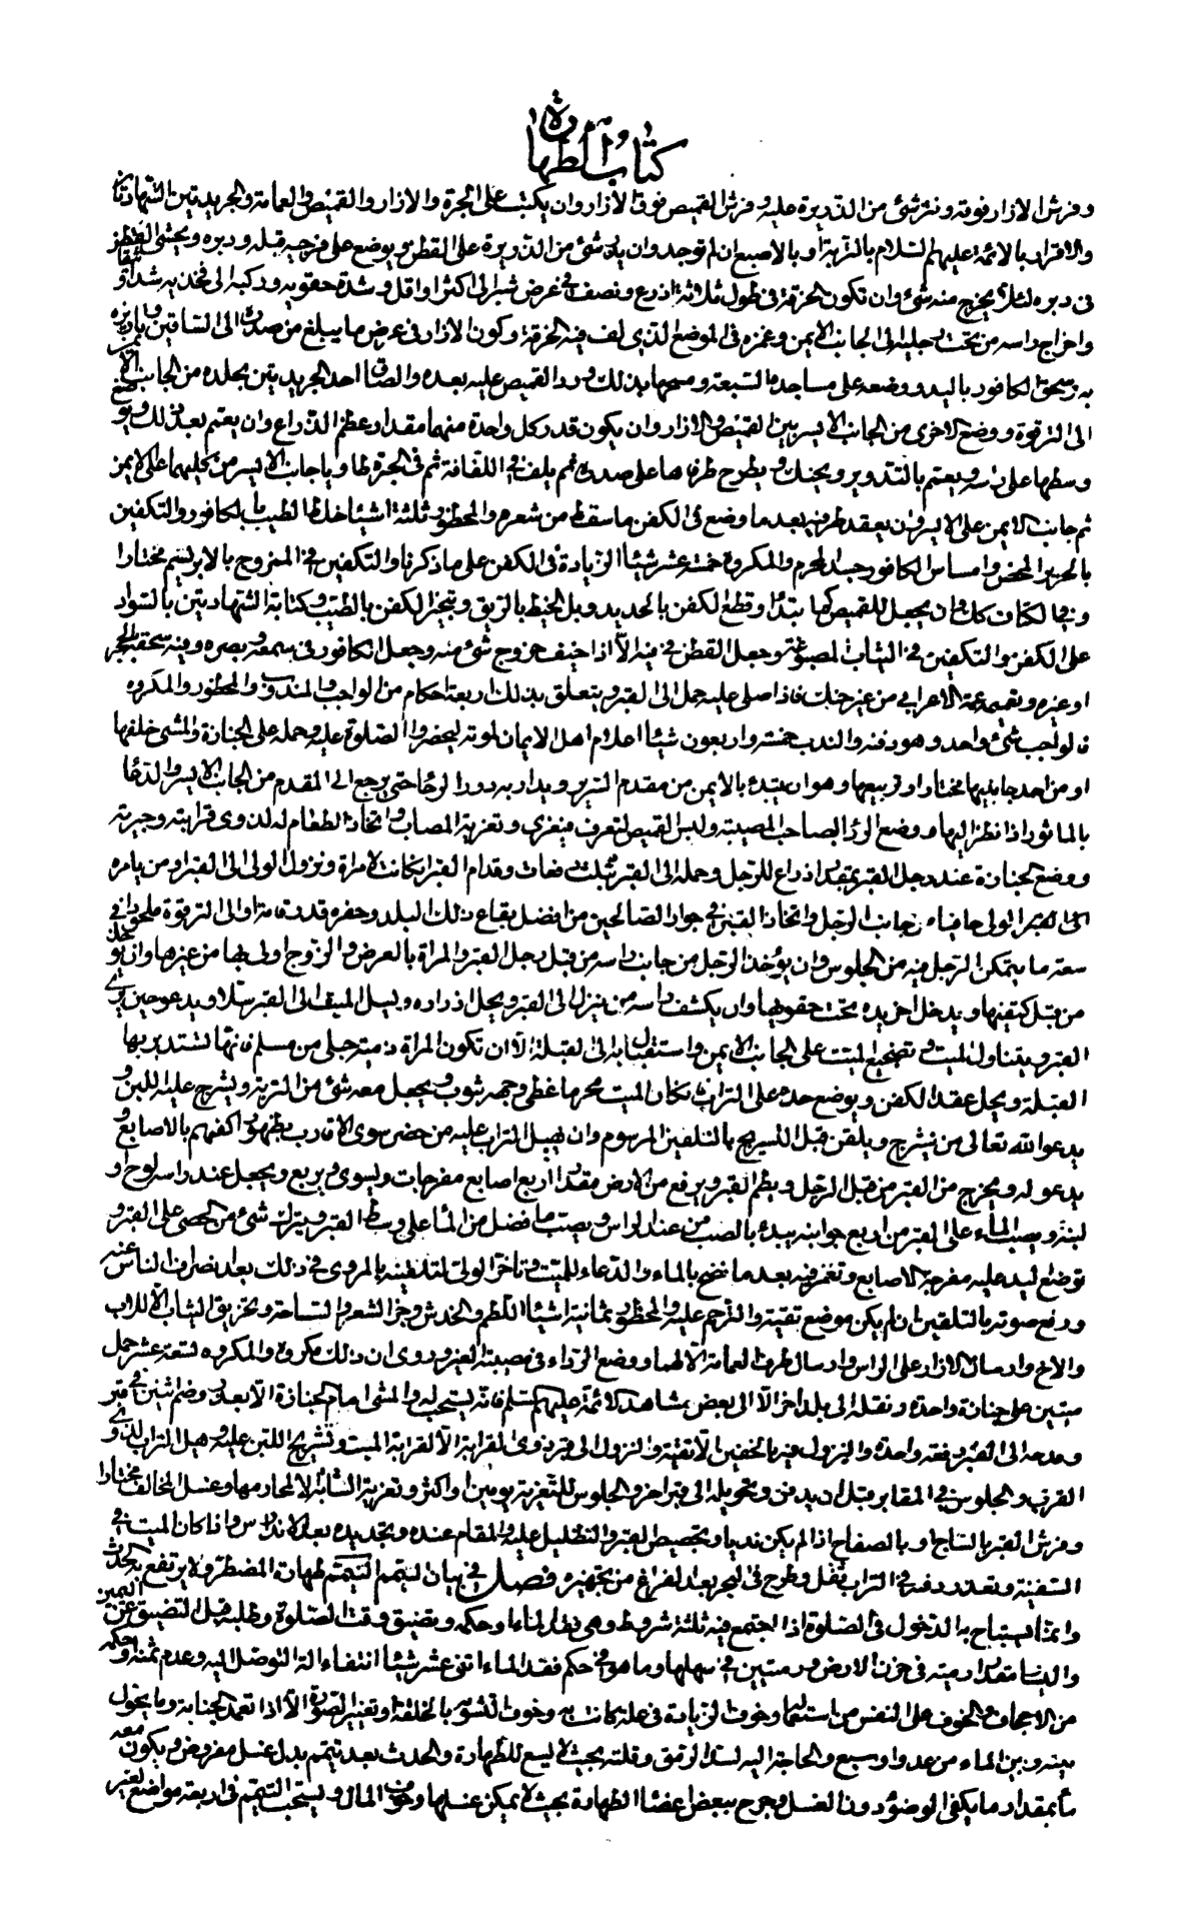 كتاب الطهارة
وفرش الازار فوقه ونثر شئ من الذريرة عليه وفرش القميص فوق الازار وان يكتب على الحبرة والازار والقميص والعمامة والجريدتين الشهادتان
والاقرار بالائمة عليهم السلام بالتربة او بالاصبع ان لم توجد وان يذر شئ من الذريرة على القطن ويوضع على فرجيه قبله ودبره ويحشى القطن
فى دبره لئلا يخرج منه شئ وان تكون الخرقة فى طول ثلاثة اذرع ونصف فى عرض شبر الى اكثر او اقل وشدة حقويه وركبه الى فخذيه شدا و
واخراج راسه من تحت رجليه الى الجانب الايمن وغمزه فى الموضع الذى لف فيه الخرقة وكون الازار فى عرض ما يبلغ من صدره الى الساقين
به وسحق الكافور باليد ووضعه على مساجده السبعة ومسحها بذلك ورد القميص عليه بعده والصاق احد الجريدتين بجلده من الجانب الايمن
الى الترقوة ووضع الاخرى من الجانب الايسر بين القميص والازار وان يكون قدر كل واحدة منهما مقدار عظم الذراع وان يعتم بعد ذلك ويوضع
وسطها على راسه ويعتم بالتدوير ويحنك ويطرح طرفاها على صدره ثم يلف فى اللفافة ثم فى الحبرة طاويا جانب الايسر من كليهما على الايمن
ثم جانب الايمن على الايسر وان يعقد طرفيه بعد ما وضع فى الكفن ما سقط من شعره والمحظور ثلثة اشياء خلط الطيب بالكافور والتكفين
بالحرير المحض وامساس الكافور جسد المحرم والمكروه خمسة عشر شيئا الزيادة فى الكفن على ما ذكرنا والتكفين فى الممزوج بالابريسم مختارا
وفى الكتان كله وان يجعل للقميص كما مبتدا وقطع الكفن بالحديد وبل الخيط بالريق وتبخير الكفن بالطيب وكتابة الشهادتين بالسواد
على الكفن والتكفين فى الثياب المصبوغة وجعل القطن فى فيه الا اذا خيف خروج شئ منه وجعل الكافور فى سمعه وبصره وفيه سحقه بالحجر
او غيره وتعميمه عمة الاعرابى من غير حنك فاذا صلى عليه حمل الى القبر ويتعلق بذلك اربعة احكام من الواجب والمندوب والمحظور والمكروه
فالواجب شئ واحد وهو دفنه والندب خمسة واربعون شيئا اعلام اهل الايمان لموته ليحضروا الصلوة عليه وحمله على الجنازة والمشى خلفها
او من احد جانبيها مختارا وتربيعها وهو ان يبتدء بالايمن من مقدم السرير ويدار به دور الرحا حتى يرجع الى المقدم من الجانب الايسر والدعاء
بالماثور اذا نظر اليها ووضع الرداء لصاحب المصيبة ولبس القميص لتعرف فيعزى وتعزية المصاب واتخاذ الطعام له لذوى قرابته وجيرته
ووضع الجنازة عند رجل القبر بمقدار ذراع للرجل وحمله الى القبر بثلث دفعات وقدام القبر ان كانت لامراة ونزول الولى الى القبر او من يامره
الولى حافيا من جانب الرجل واتخاذ القبر فى جوار الصالحين من افضل بقاع ذلك البلد وحفره قدر قامة او الى الترقوة ملحودا فى
سعة ما يتمكن الرجل فيه من الجلوس وان يؤخذ الرجل من جانب راسه من قبل رجل القبر والمراة بالعرض والزوج اولى بها من غيرها وان
من قبل كتفيها ويدخل اخر يده تحت حقويها وان يكشف راسه من ينزل الى القبر ويحل ازراره ويسل الميت الى القبر سلا ويدعو حين يرى
القبر ويتناول الميت وتضجيع الميت على الجانب الايمن واستقباله الى القبلة الا ان تكون المراة ذمية حبلى من مسلم فانها تستدبر بها
القبلة ويحل عقد الكفن ويوضع خده على التراب وان كان الميت محرما غطى وجهه بثوب ويجعل معه شئ من التربة ويشرج عليه اللبن و
يدعو الله تعالى من يشرج ويلقن قبل التشريج بالتلقين المرسوم وان يهيل التراب عليه من حضر سوى الاقارب بظهور اكفهم بالاصابع و
يدعو له ويخرج من القبر من قبل الرجل ويطم القبر ويرفع من الارض مقدار اربع اصابع مفرجات ويسوى ويربع ويجعل عند راسه لوح او
لبنة ويصب الماء على القبر من اربع جوانبه يبدء بالصب من عند الراس ويصب ما فضل من الماء على وسط القبر ويترك شئ من الحصى على القبر و
توضع اليد عليه مفرجة الاصابع وتغمز فيه بعد ما نضح بالماء والدعاء للميت وتاخر الولى لتلقينه بالمروى فى ذلك بعد انصراف الناس عنه
ورفع صوته بالتلقين ان لم يكن موضع تقية والترحم عليه والمحظور ثمانية اشياء اللطم والخدش وجز الشعر والنياحة وتخريق الثياب الا للاب
والاخ وارسال الازار على الراس وارسال طرف العمامة الا لهما ووضع الرداء فى مصيبة الغير وروى ان ذلك مكروه والمكروه تسعة عشر حمل
ميتين على جنازة واحدة ونقله الى بلد اخر الا الى بعض مشاهد الائمة عليهم السلم فانه يستحب له والمشى امام الجنازة الا بعذر وضم اثنين فى قبر
وحمله الى القبر دفعة واحدة والنزول فيه بالخفين الا تقية والنزول الى قبر ذوى القرابة الا لقرابة الميت وتشريج اللبن عليه وهيل التراب لذى
القربى والجلوس فى المقابر قبل ان يدفن وتحويله الى قبر اخر والجلوس للتعزية يومين او اكثر وتعزية الشابة الا لمحارمها وغسل المخالف مختارا
وفرش القبر بالساج او بالصفاح اذا لم يكن نديا وتجصيص القبر والتظليل عليه والمقام عنده وتجديده بعد الاندراس واذا كان الميت فى
السفينة وتعذر دفنه فى التراب ثقل وطرح فى البحر بعد الفراغ من تجهيزه فصل فى بيان التيمم التيمم طهارة المضطر ولا يرتفع به الحدث
وانما يستباح به الدخول فى الصلوة اذا اجتمع فيه ثلثة شروط وهى فقد الماء او حكمه وتضيق وقت الصلوة وطلبه قبل التضيق عن اليمين
واليسار مقدار رمية فى حزن الارض ورميتين فى سهلها وما هو فى حكم فقد الماء اثنى عشر شيئا انتفاء الة التوصل اليه وعدم ثمنه او حكمه
من الاجحاف والخوف على النفس من استعماله وخوف الزيادة فى علة كانت به وخوف التشويه بالخلقة وتغيير الصورة الا اذا تعمد الجنابة وما يحول
بينه وبين الماء من عدو او سبع والحاجة اليه لسد الرمق وقلته بحيث لا يسع للطهارة والحدث بعد تيمم بدل غسل مفروض ويكون معه
ماء بمقدار ما يكفى الوضوء دون الغسل وجرح ببعض اعضاء الطهارة بحيث لا يمكن غسلها وخوف المال ويستحب التيمم فى اربعة مواضع لغير